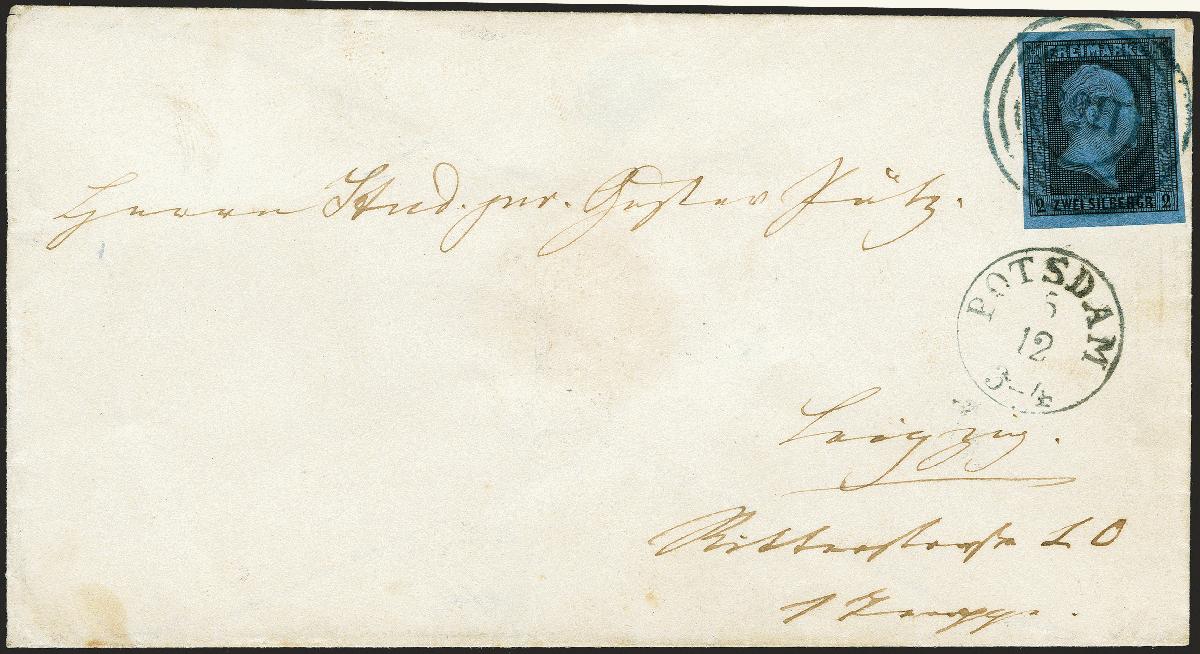 FREIMARKE
2 ZWEI SILBERGR. 2
Herrn Stud. jur. Gustav Pütz.
POTSDAM
5
12
3-4
Leipzig.
Ritterstraße 10
1 Treppe.